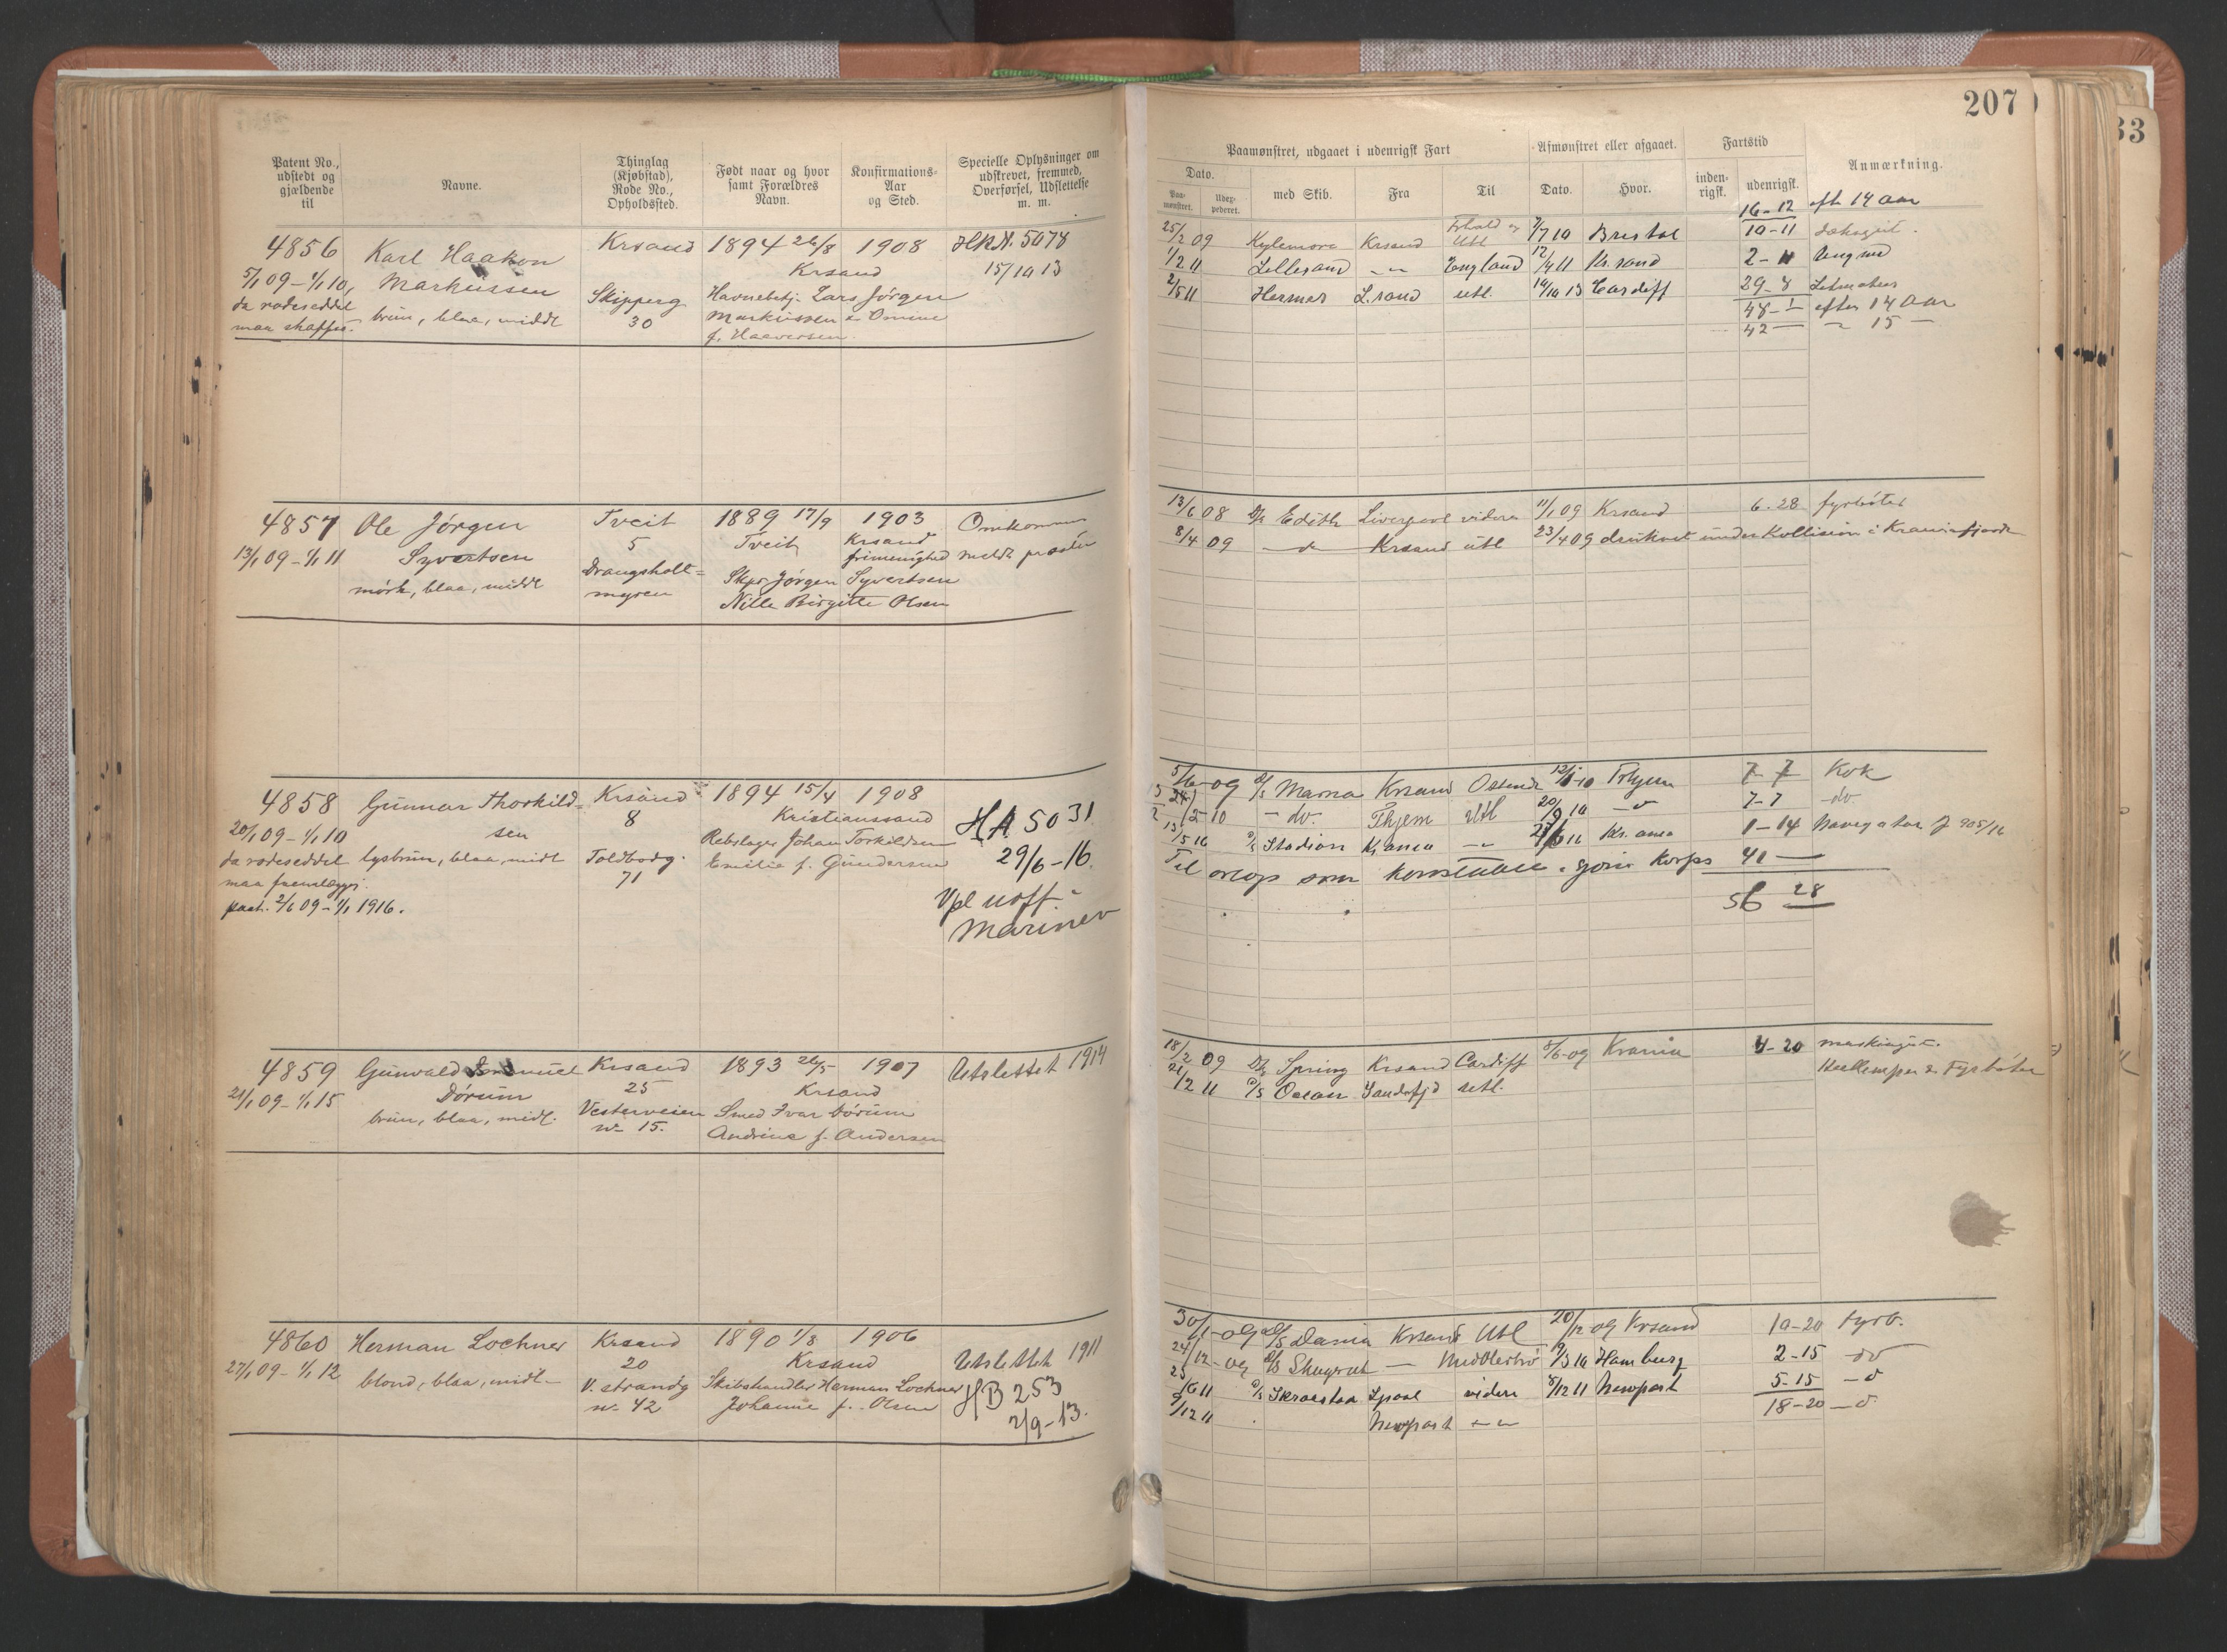 207
33
Patent No., udstedt og gjældende til
Navne.
Thinglag (Kjøbstad), Rode No., Opholdssted.
Født naar og hvor samt Forældres Navn.
Konfirmations-Aar og Sted.
Specielle Oplysninger om udskrevet, fremmed, Overførsel, Udslettelse m. m.
Paamønstret, udgaaet i udenrigsk Fart
Afmønstret eller afgaaet.
Fartstid
Anmærkning.
Dato.
Paa-mønstret.
Udex-pederet.
med Skib.
Fra
Til
Dato.
Hvor.
inden-rigsk.
udenrigsk.
4856 Karl Haakon Krsand 1894 26/8 1908 HA. 5078
5/1 09 – 1/1 10, Markussen Krsand 15/10 13
da rodeseddel Skipperg Havnebetj. Lars Jørgen
maa skaffes. brun, blaa, middl 30 Markussen & Omine
f. Haaversen
16–12 eft 14 aar
25/2 09 Kylemore Krsand Utl 7/7 10 Bristol 10–11
1/2 11 Lillesand –"– England 12/4 11 Kr.sand 2–11 Ungmd
2/5 11 Hermes L.sand utl. 14/10 13 Cardiff 29–8 Letmatros
48–1 efter 14 Aar
42 – –"– 15 –
4857 Ole Jørgen Tveit 1889 17/9 1903 Omkommen
13/1 09 – 1/1 11 Syvertsen 5 Tveit Krsand
Drangsholt= frimenighed meldt præsten
mørk, blaa, middl myren Skpr. Jørgen Syvertsen
Nille Birgitte Olsen
13/6 08 D/s Edith Liverpool videre 11/1 09 Krsand 6.28 fyrbøter
8/4 09 –do– Krsand utl 23/4 09 druknet under Kollision i Kraniafjorden
4858 Gunnar Thorkild= Krsand 1894 15/4 1908
20/1 09 – 1/1 10 sen 8 Kristianssand HA 5031
da rodeseddel lysbrun, blaa, midl Toldbodg. Rebslager Johan Torkildsen 29/6–16.
maa fremlægges. 71 Emilie f. Gundersen
pat. 2/6 09 – 1/1 1916. Vpl uoff.
Mariner
5/6–09 D/s Marna Krsand Ostende 12/1–10 Trhjem 7–7 Kok
2/2–10 –do– Thjem Utl 20/9 10 –o 7–7 –do–
13/5 16 D/s Stadion Kr.ania –"– 27/6 16 Kr.ania 1–14 Navigatør J 905/16
Til orlogs som Konstabel i Korps 41 –
56 28
4859 Gunvald Krsand 1893 26/5 1907 Utslettet 1914
21/1 09 – 1/1 15 Dørum 25 Krsand
brun, blaa, midl. Vesterveien Smed Ivar Dørum
no 15. Andrine f. Andersen
18/2 09 D/s Spring Krsand Cardiff 5/6–09 Krania 4–20 maskingut.
21/12 11 D/s Ocean Sandefjd utl. Kullemper & Fyrbøter
4860 Herman Lochner Krsand 1890 1/8 1906 Utslettet 1911
27/1 09 – 1/1 12 20 Krsand
blond, blaa, midl– V. strandg Skibshandler Herman Lochner HB 253
no 42 Johanne f. Olsen 2/9–13.
30/1–09 D/s Dania Krsand Utl 20/12 09 Krsand 10–20 Fyrb.
24/12–09 D/s Skugvat – Middlesbro 9/3 10 Hamburg 2–15 –do
25/6 11 D/s Skraastad Lpool videre 8/12 11 Newport 5–15 –o
9/12 11 Newport –"– 18–20 –o